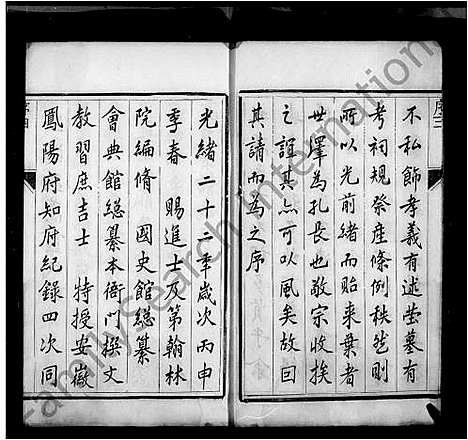 序三
不私飾孝義有述塋墓有
考祠規祭產條例秩然則
所以光前緒而貽來葉者
世澤為孔長也敬宗收族
之誼其亦可以風矣故因
其請而為之序
光緒二十二年歲次丙申
季春 賜進士及第翰林
院編脩 國史館總纂
會典館總纂本衙門撰文
教習庶吉士 特授安徽
鳳陽府知府紀錄四次同
FamilySearch International